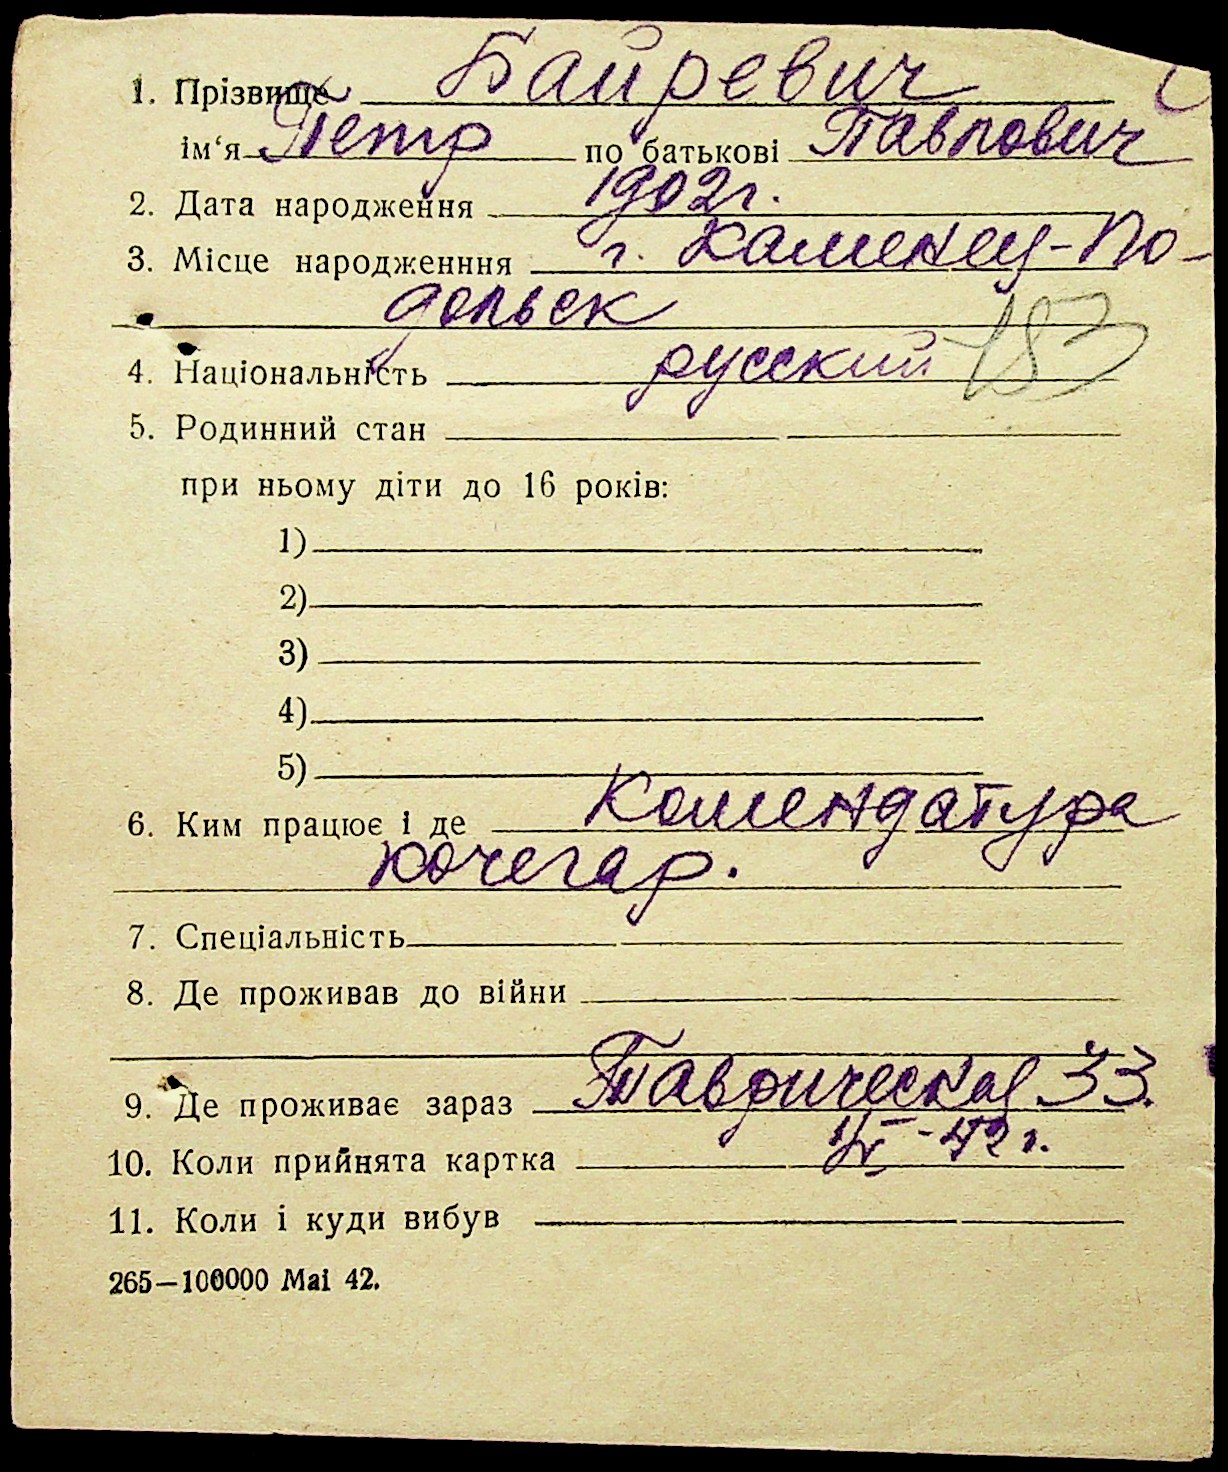 1. Прізвище Байревич
ім‘я Петр по батькові Павлович
2. Дата народження 1902г.
3. Місце народженння г. Каменец-По-
дольск
4. Національність русский 183
5. Родинний стан
при ньому діти до 16 років:
1)
2)
3)
4)
5)
6. Ким працює і де Комендатура
кочегар.
7. Спеціальність
8. Де проживав до війни
9. Де проживає зараз Таврическая 33.
10. Коли прийнята картка -42 г.
11. Коли і куди вибув
265—100000 Mai 42.